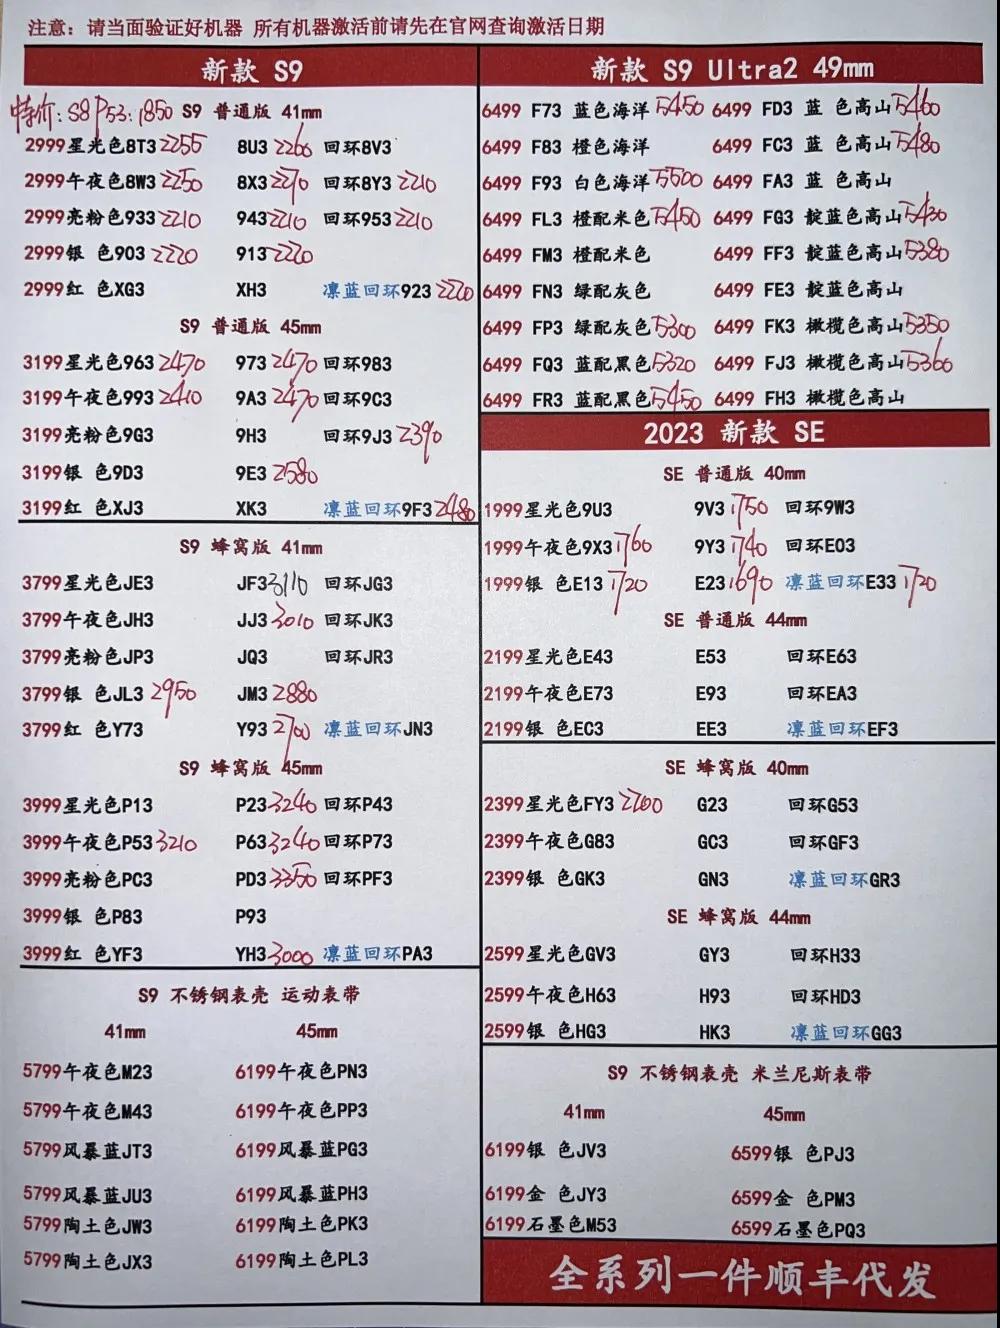 注意：请当面验证好机器 所有机器激活前请先在官网查询激活日期
新款 S9
特价：S8 P53：1850 S9 普通版 41mm
2999星光色8T3 2255 8U3 2260 回环8V3
2999午夜色8W3 2250 8X3 2270 回环8Y3 2210
2999亮粉色933 2210 943 2210 回环953 2210
2999银 色903 2220 913 2220
2999红 色XG3 XH3 凛蓝回环923 2220
S9 普通版 45mm
3199星光色963 2470 973 2470 回环983
3199午夜色993 2410 9A3 2470 回环9C3
3199亮粉色9G3 9H3 回环9J3 2390
3199银 色9D3 9E3 2580
3199红 色XJ3 XK3 凛蓝回环9F3 2480
S9 蜂窝版 41mm
3799星光色JE3 JF3 3110 回环JG3
3799午夜色JH3 JJ3 3010 回环JK3
3799亮粉色JP3 JQ3 回环JR3
3799银 色JL3 2950 JM3 2880
3799红 色Y73 Y93 2700 凛蓝回环JN3
S9 蜂窝版 45mm
3999星光色P13 P23 3240 回环P43
3999午夜色P53 3210 P63 3240 回环P73
3999亮粉色PC3 PD3 3350 回环PF3
3999银 色P83 P93
3999红 色YF3 YH3 3000 凛蓝回环PA3
S9 不锈钢表壳 运动表带
41mm 45mm
5799午夜色M23 6199午夜色PN3
5799午夜色M43 6199午夜色PP3
5799风暴蓝JT3 6199风暴蓝PG3
5799风暴蓝JU3 6199风暴蓝PH3
5799陶土色JW3 6199陶土色PK3
5799陶土色JX3 6199陶土色PL3
新款 S9 Ultra2 49mm
6499 F73 蓝色海洋 5450 6499 FD3 蓝 色高山 5460
6499 F83 橙色海洋 6499 FC3 蓝 色高山 5480
6499 F93 白色海洋 5500 6499 FA3 蓝 色高山
6499 FL3 橙配米色 5450 6499 FG3 靛蓝色高山 5430
6499 FM3 橙配米色 6499 FF3 靛蓝色高山 5380
6499 FN3 绿配灰色 6499 FE3 靛蓝色高山
6499 FP3 绿配灰色 5300 6499 FK3 橄榄色高山 5350
6499 FQ3 蓝配黑色 5320 6499 FJ3 橄榄色高山 5360
6499 FR3 蓝配黑色 5450 6499 FH3 橄榄色高山
2023 新款 SE
SE 普通版 40mm
1999星光色9U3 9V3 1750 回环9W3
1999午夜色9X3 1760 9Y3 1740 回环E03
1999银 色E13 1720 E23 1690 凛蓝回环E33 1720
SE 普通版 44mm
2199星光色E43 E53 回环E63
2199午夜色E73 E93 回环EA3
2199银 色EC3 EE3 凛蓝回环EF3
SE 蜂窝版 40mm
2399星光色FY3 2200 G23 回环G53
2399午夜色G83 GC3 回环GF3
2399银 色GK3 GN3 凛蓝回环GR3
SE 蜂窝版 44mm
2599星光色GV3 GY3 回环H33
2599午夜色H63 H93 回环HD3
2599银 色HG3 HK3 凛蓝回环GG3
S9 不锈钢表壳 米兰尼斯表带
41mm 45mm
6199银 色JV3 6599银 色PJ3
6199金 色JY3 6599金 色PM3
6199石墨色M53 6599石墨色PQ3
全系列一件顺丰代发